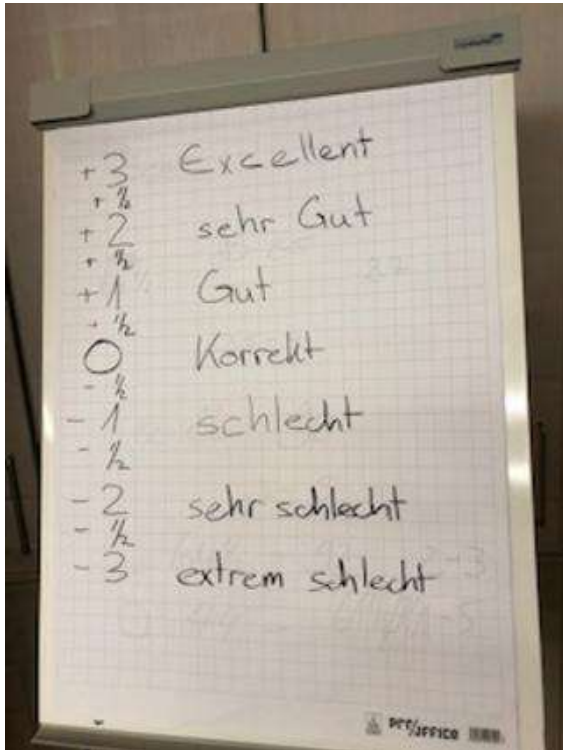 +3 Excellent
+ ½
+2 sehr Gut
+ ½
+1 Gut
+ ½
0 Korrekt
- ½
-1 schlecht
- ½
-2 sehr schlecht
- ½
-3 extrem schlecht
OFFICE